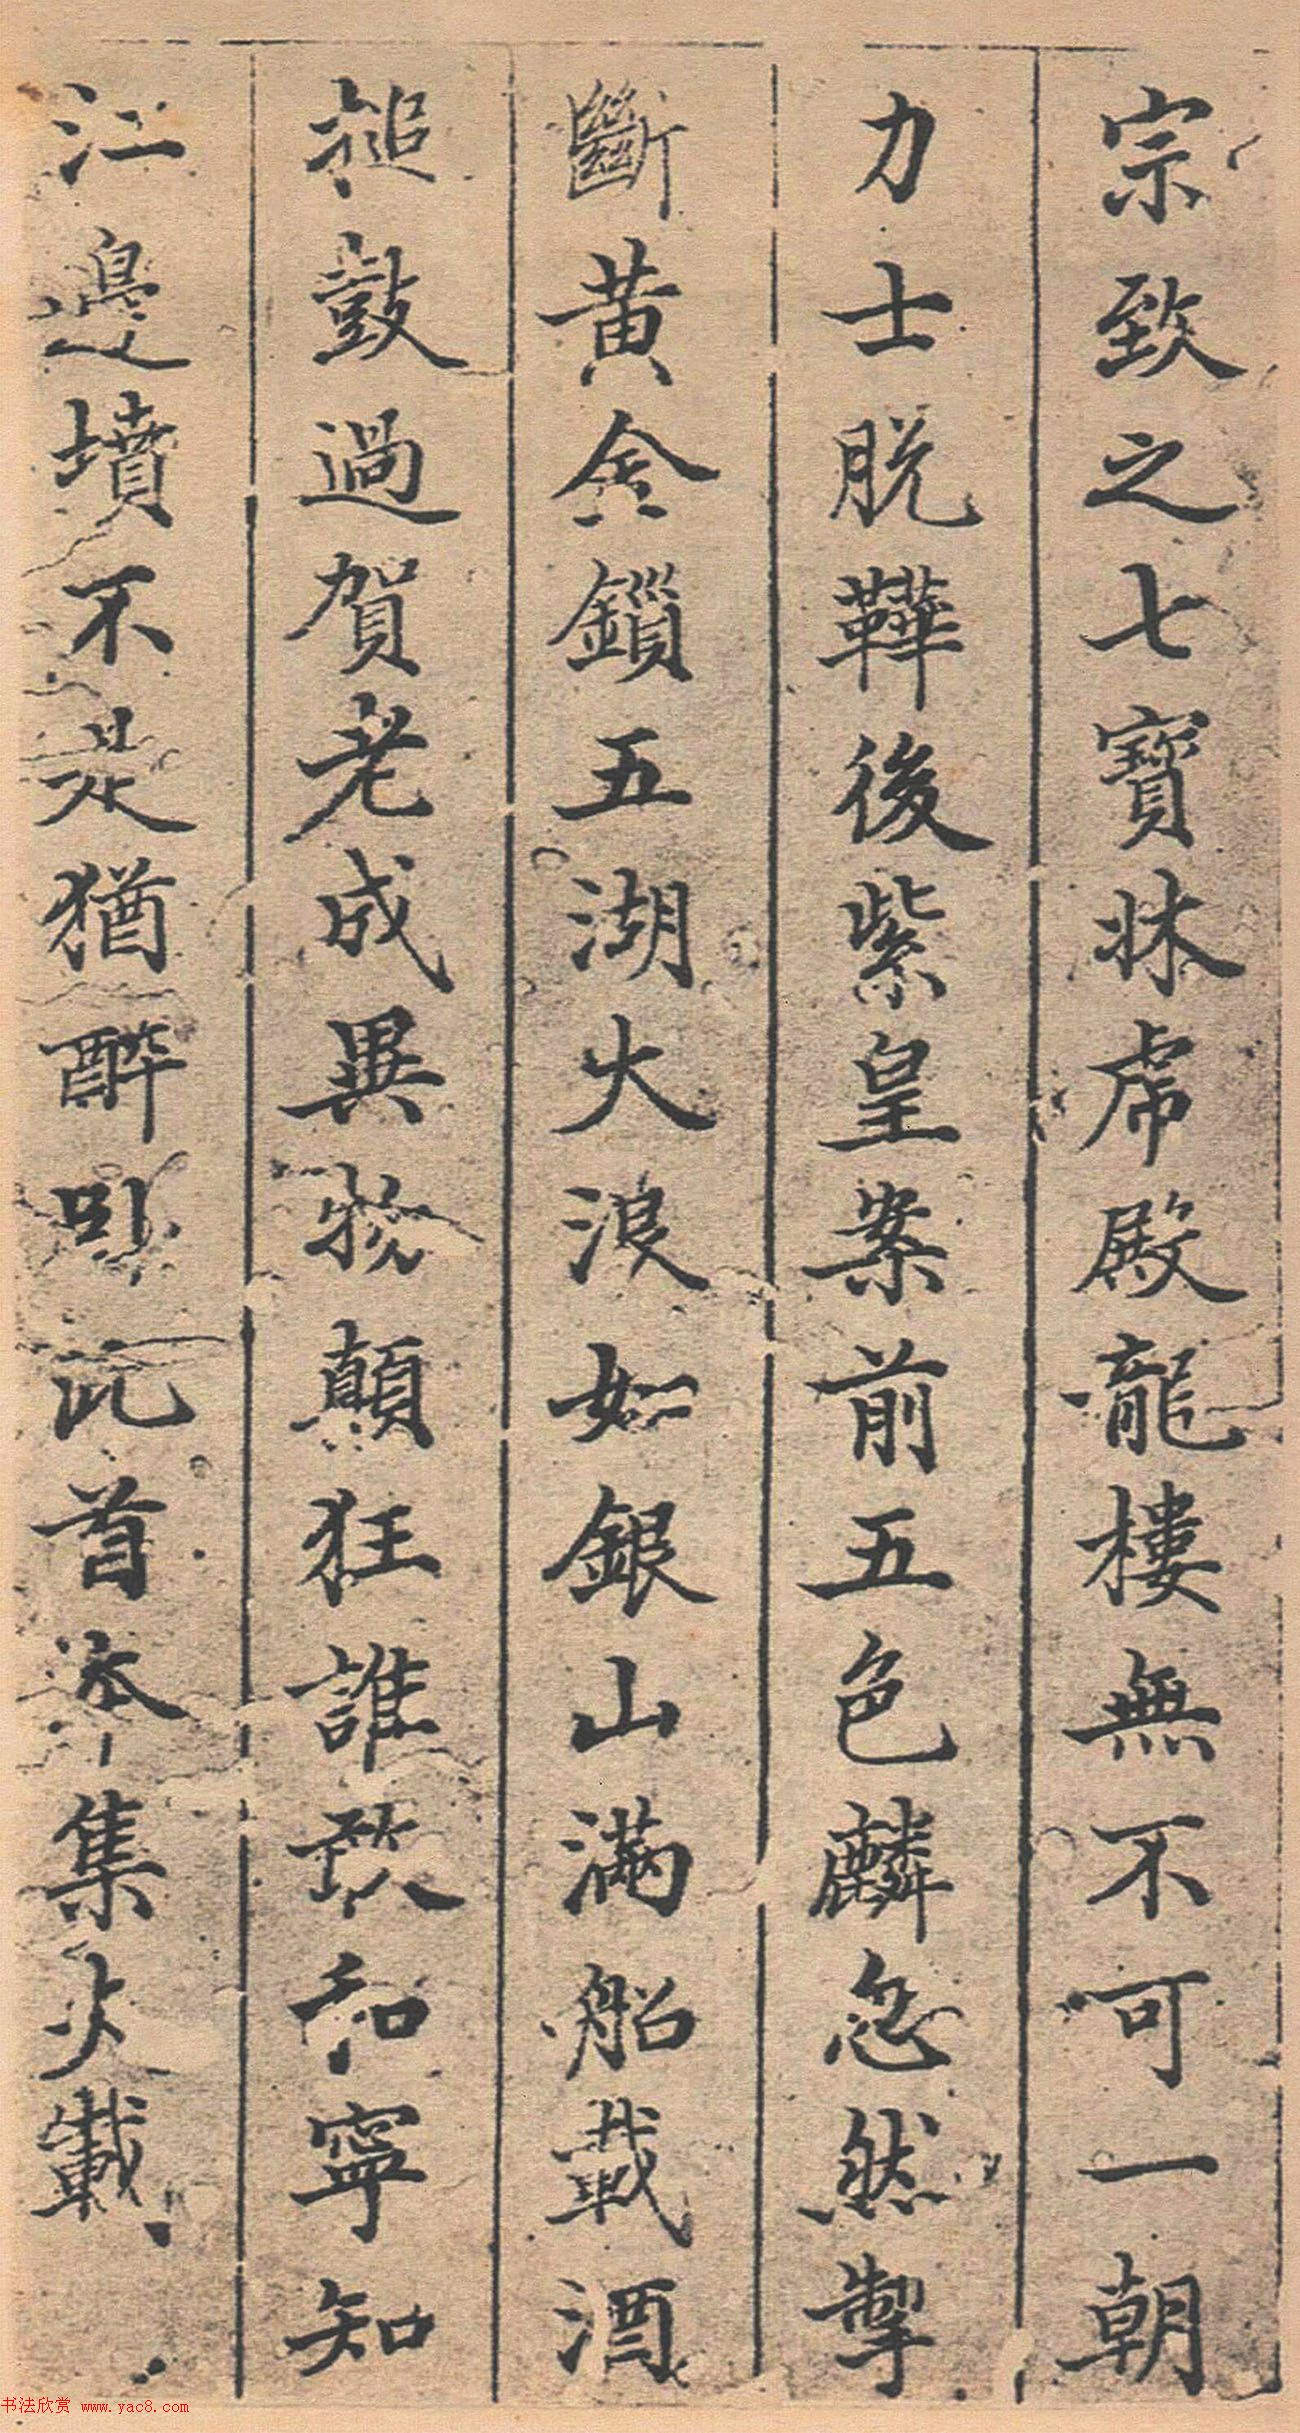 宗致之七寳牀虎殿龍樓無不可一朝
力士脱鞾後紫皇案前五色麟忽然掣
斷黄金鎖五湖大浪如銀山滿船載酒
搥鼓過賀老成異物顛狂誰敢和寧知
江邊墳不是猶醉卧此首本集大載
书法欣赏 www.yac8.com